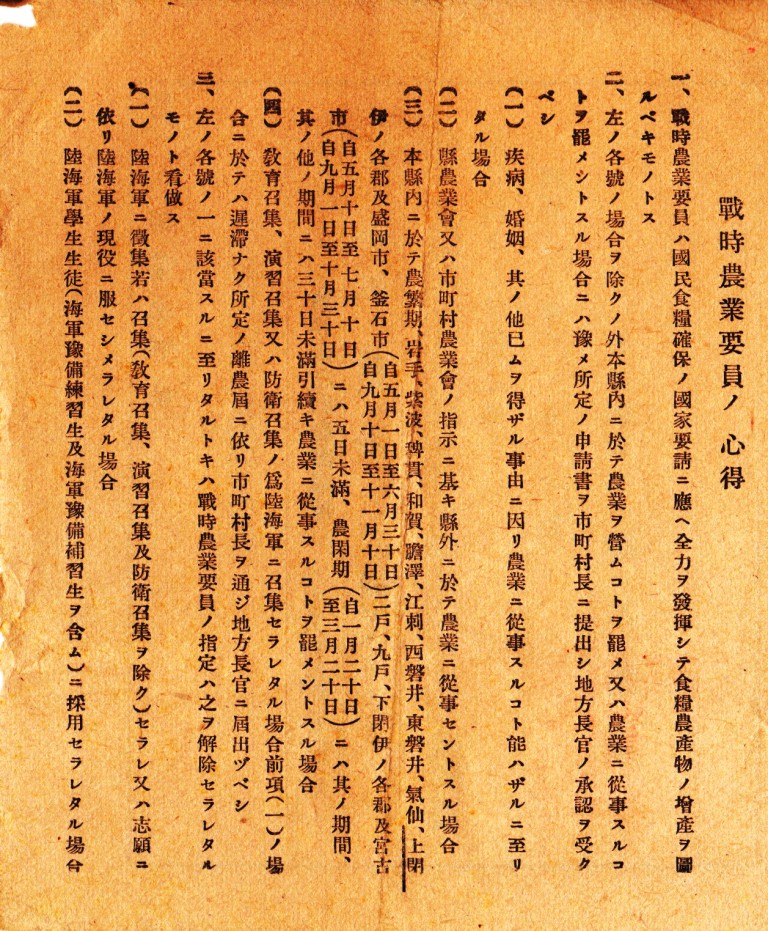 戰時農業要員ノ心得
一、戰時農業要員ハ國民食糧確保ノ國家要請ニ應ヘ全力ヲ發揮シテ食糧農產物ノ增產ヲ圖
ルベキモノトス
二、左ノ各號ノ場合ヲ除クノ外本縣內ニ於テ農業ヲ營ムコトヲ罷メ又ハ農業ニ從事スルコ
トヲ罷メントスル場合ニハ豫メ所定ノ申請書ヲ市町村長ニ提出シ地方長官ノ承認ヲ受ク
ベシ
(一) 疾病、婚姻、其ノ他已ムヲ得ザル事由ニ因リ農業ニ從事スルコト能ハザルニ至リ
タル場合
(二) 縣農業會又ハ市町村農業會ノ指示ニ基キ縣外ニ於テ農業ニ從事セントスル場合
(三) 本縣內ニ於テ農繁期、岩手、紫波、稗貫、和賀、膽澤、江刺、西磐井、東磐井、氣仙、上閉
伊ノ各郡及盛岡市、釜石市(自五月一日至六月三十日 自九月十日至十一月十日)二戶、九戶、下閉伊ノ各郡及宮古
市(自五月十日至七月十日 自九月一日至十月三十日)ニハ五日未滿、農閑期(自一月二十日 至三月二十日)ニハ其ノ期間、
其ノ他ノ期間ニハ三十日未滿引續キ農業ニ從事スルコトヲ罷メントスル場合
(四) 敎育召集、演習召集又ハ防衛召集ノ爲陸海軍ニ召集セラレタル場合前項(一)ノ場
合ニ於テハ遲滯ナク所定ノ離農屆ニ依リ市町村長ヲ通ジ地方長官ニ屆出ヅベシ
三、左ノ各號ノ一ニ該當スルニ至リタルトキハ戰時農業要員ノ指定ハ之ヲ解除セラレタル
モノト看做ス
(一) 陸海軍ニ徵集若ハ召集(敎育召集、演習召集及防衛召集ヲ除ク)セラレ又ハ志願ニ
依リ陸海軍ノ現役ニ服セシメラレタル場合
(二) 陸海軍學生生徒(海軍豫備練習生及海軍豫備補習生ヲ含ム)ニ採用セラレタル場合